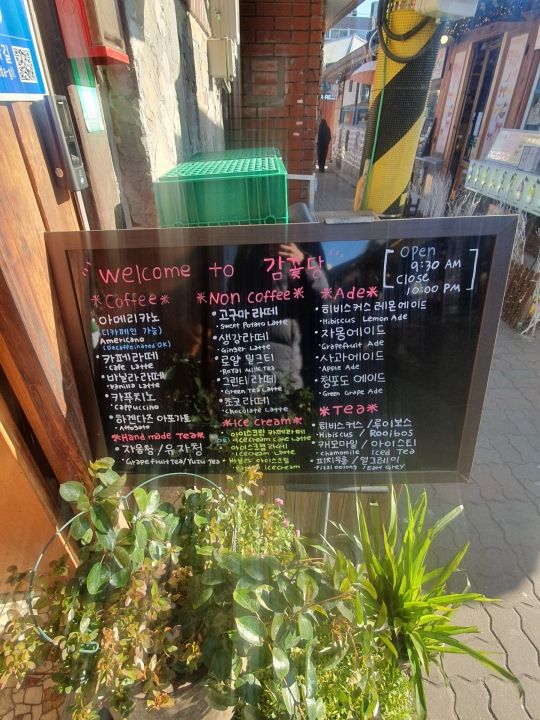 Welcome to 감꽃당
Open
9:30 AM
Close
10:00 PM
*Coffee*
•아메리카노
(디카페인 가능)
Americano
(Decaffeinated OK)
•카페라떼
Cafe Latte
•바닐라라떼
Vanilla Latte
•카푸치노
Cappuccino
•하겐다즈 아포가토
Affogato
*Hand made Tea*
•자몽청/유자청
Grapefruit Tea/Yuzu Tea
*Non coffee*
•고구마 라떼
Sweet Potato Latte
•생강라떼
Ginger Latte
•로얄 밀크티
Royal Milk Tea
•그린티 라떼
Green Tea Latte
•초코라떼
Chocolate Latte
*Ice cream*
•아이스크림 카페라떼
icecream cafe Latte
•아이스크림라떼
icecream Latte
icecream
*Ade*
•히비스커스 레몬에이드
Hibiscus Lemon Ade
•자몽에이드
Grapefruit Ade
•사과에이드
Apple Ade
•청포도 에이드
Green Grape Ade
*Tea*
•히비스커스/루이보스
Hibiscus / Rooibos
•캐모마일/아이스티
chamomile Iced Tea
•피치우롱/얼그레이